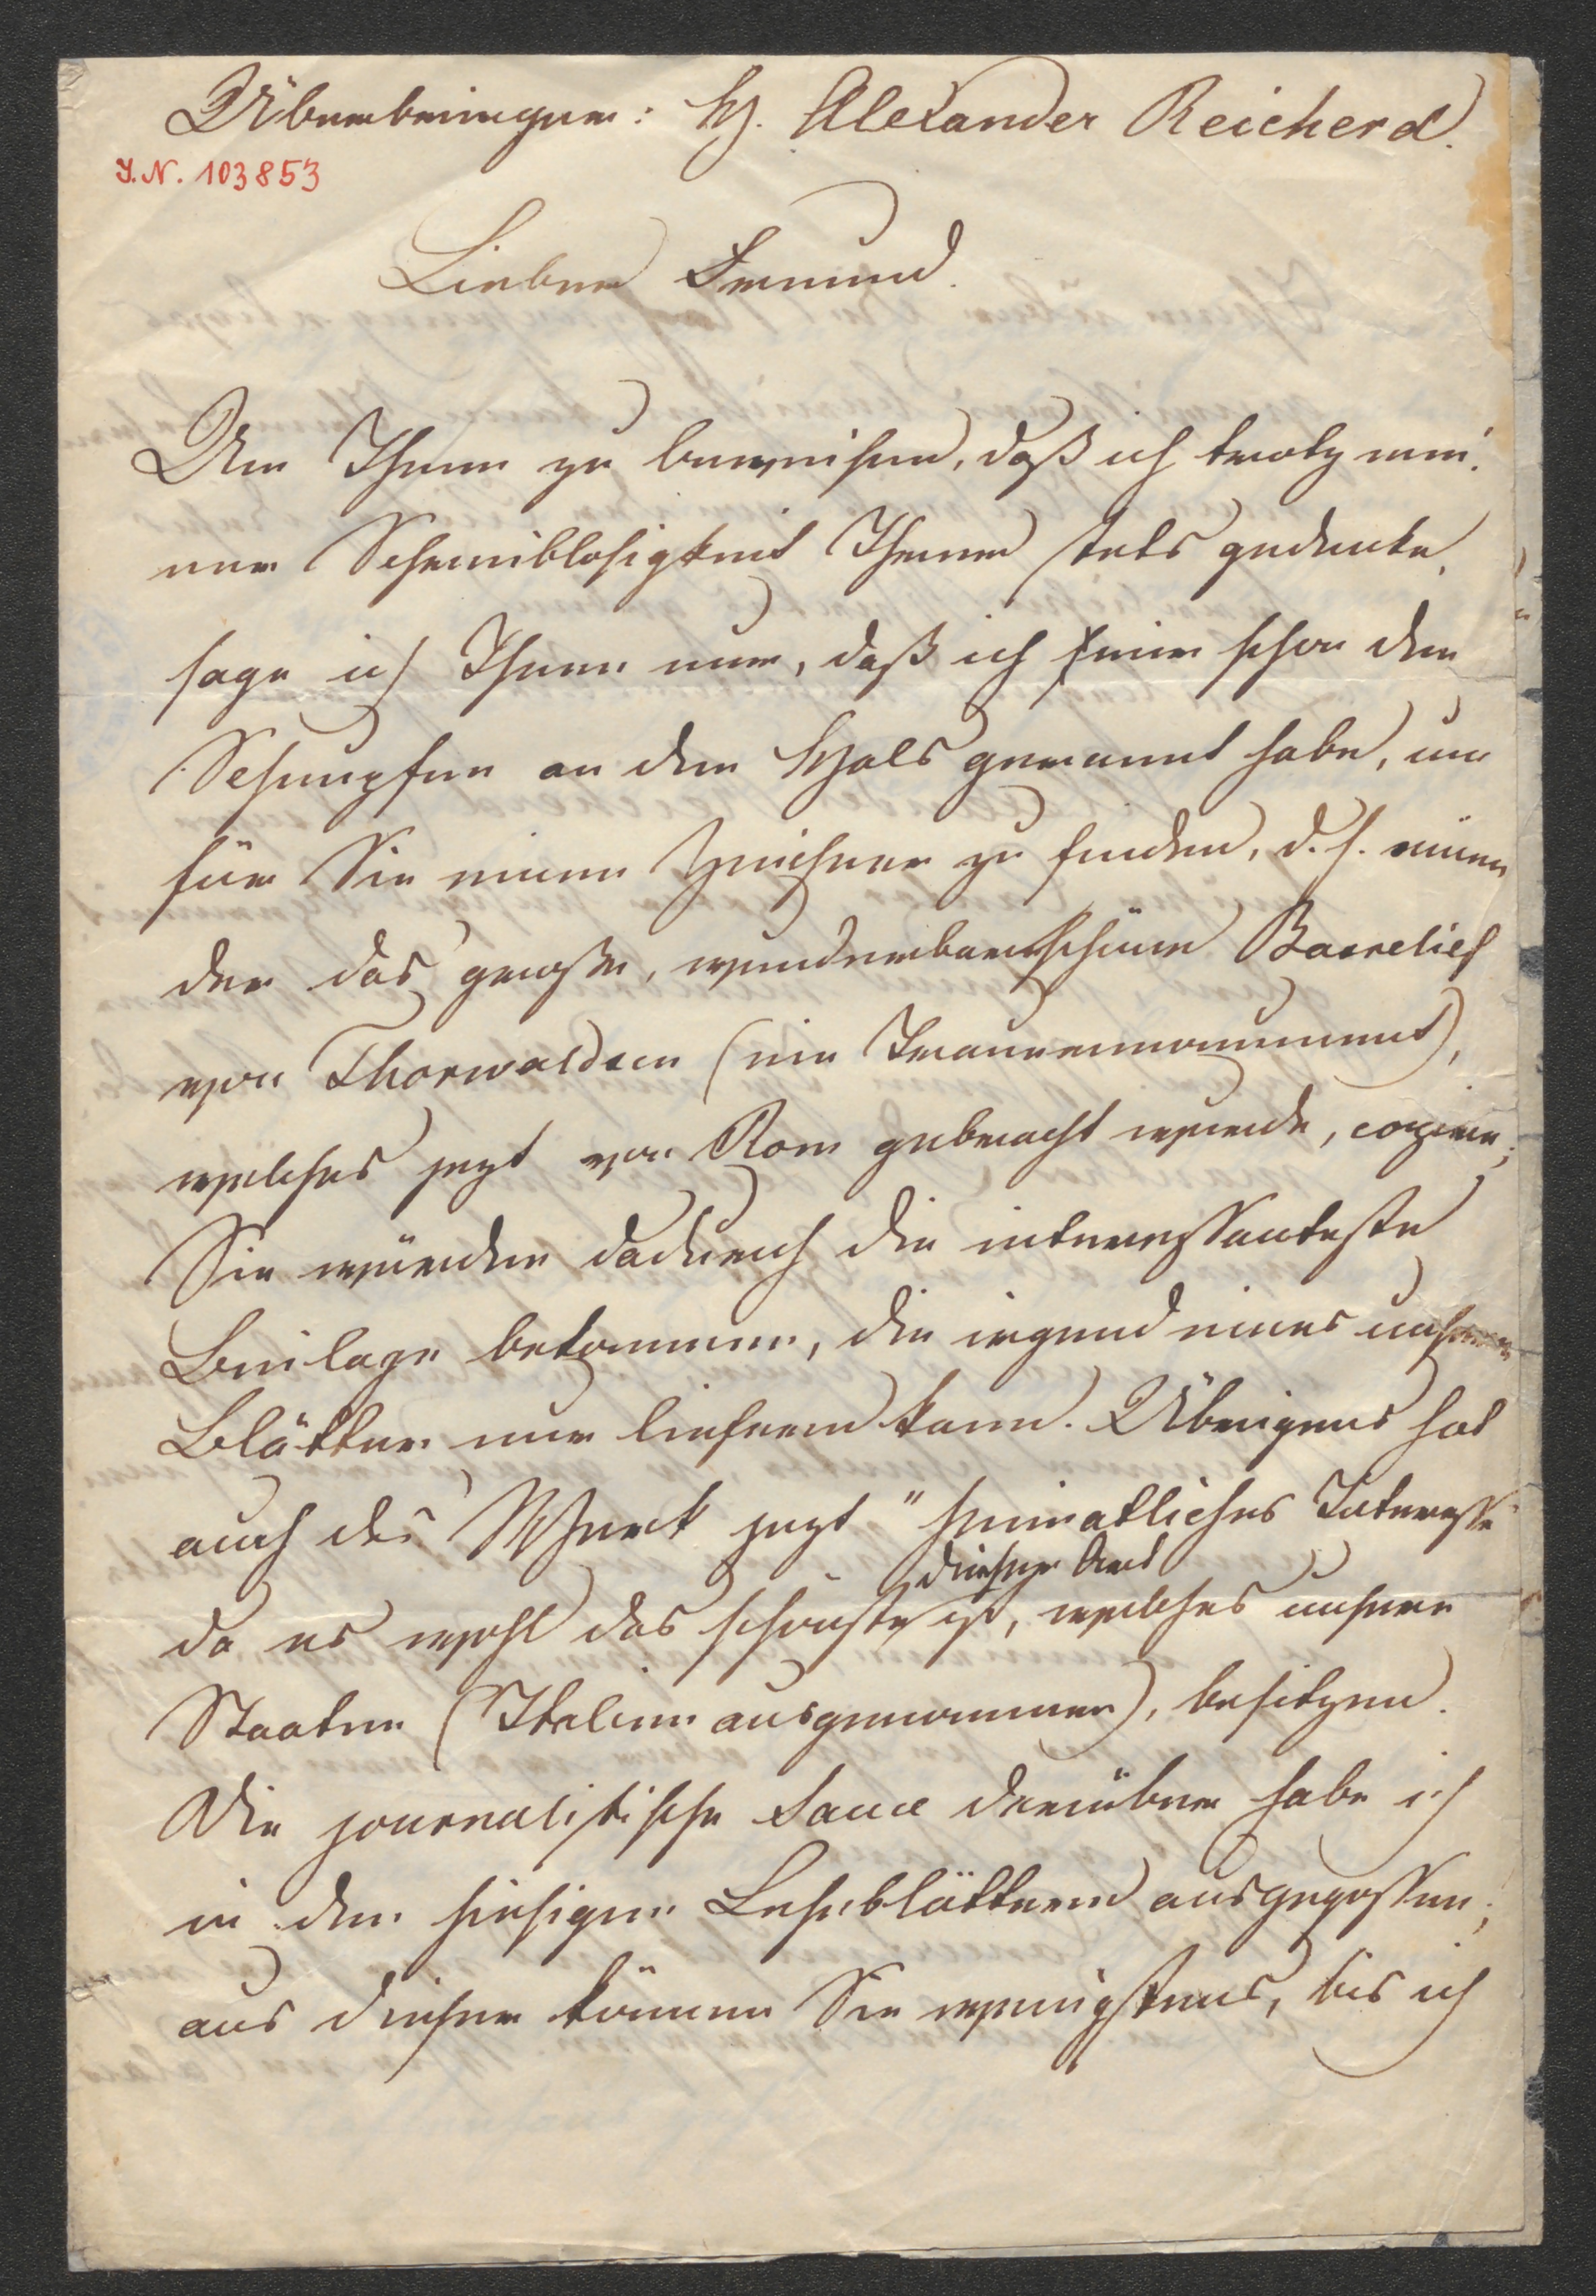 Überbringer: H. Alexander Reicherd.
I.N. 103853
Lieber Freund.
Um Ihnen zu beweisen, daß ich trotz mei-
ner Schreiblosigkeit Ihrer stets gedenke,
sage ich Ihnen nur, daß ich hier schon den
Schnupfen an den Hals gerannt habe, um
für Sie einen Zeichner zu finden, d. h. einen
der das große, wunderbarschöne Basrelief
von Thorwaldsen (ein Trauermonument),
welches jezt von Rom gebracht wurde, copire;
Sie würden dadurch die interessanteste
Beilage bekommen, die irgend eines unserer
Blätter nur liefern kann. Übrigens hat
auch das Werk jezt "heimatliches Interesse
dieser Art
da es wohl das schönste ist, welches unsere
Staaten (Italien ausgenommen), besitzen.
Die journalistische Sauce darüber habe ich
in den hiesigen Leseblättern ausgegossen;
aus diesen können Sie wenigstens, bis ich